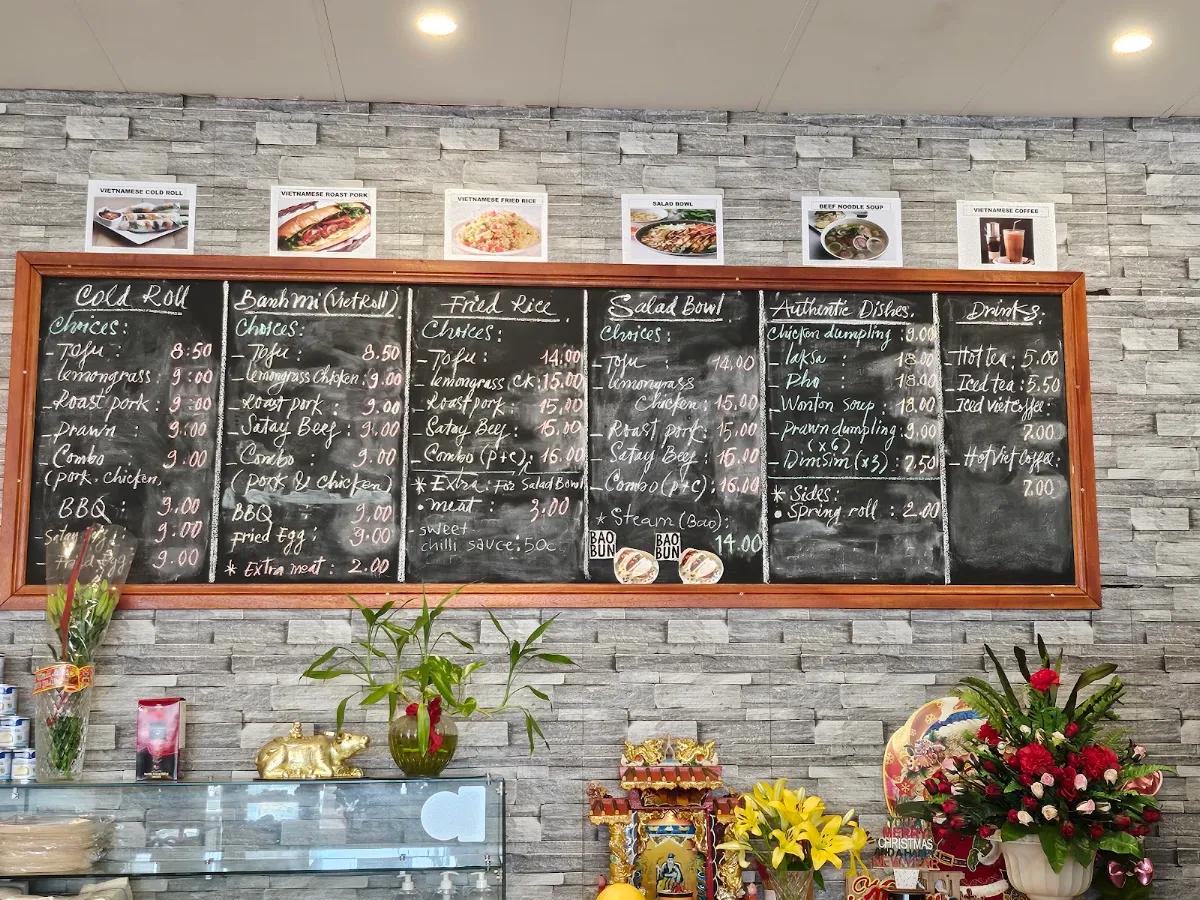 VIETNAMESE COLD ROLL
VIETNAMESE ROAST PORK
VIETNAMESE FRIED RICE
SALAD BOWL
BEEF NOODLE SOUP
VIETNAMESE COFFEE
Cold Roll
Choices:
- Tofu : 8:50
- lemongrass : 9:00
- Roast pork : 9:00
- prawn : 9:00
- Combo 9.00
(pork. chicken,
BBQ 9.00
Satay 9.00
Fried Egg 9.00
Banh mi (Viet Roll)
Choices:
- Tofu : 8.50
- lemongrass Chicken: 9.00
- Roast pork : 9.00
- Satay Beef : 9.00
- Combo : 9.00
(pork & chicken)
BBQ 9.00
Fried Egg : 9.00
* Extra meat : 2.00
Fried Rice
Choices:
- Tofu : 14.00
- lemongrass CK: 15.00
- Roast pork : 15.00
- Satay Beef : 15.00
- Combo (p+c): 16.00
* Extra : For Salad Bowl
• meat : 3.00
- sweet
chilli sauce: 50c
Salad Bowl
Choices:
- Tofu : 14.00
- lemongrass
Chicken : 15.00
- Roast pork : 15.00
- Satay Beef : 15.00
- Combo (p+c): 16.00
* Steam (Bao):
14.00
BAO
BUN
BAO
BUN
Authentic Dishes.
Chicken dumpling : 9.00
- laksa : 18.00
- Pho : 18.00
- Wonton Soup : 18.00
- Prawn dumpling: 9.00
(x6)
- Dim Sim (x3) : 7.50
* Sides:
• Spring roll : 2.00
Drinks:
- Hot tea : 5.00
- Iced tea : 5.50
- Iced Viet Coffee:
7.00
- Hot Viet Coffee:
7.00
MERRY
CHRISTMAS